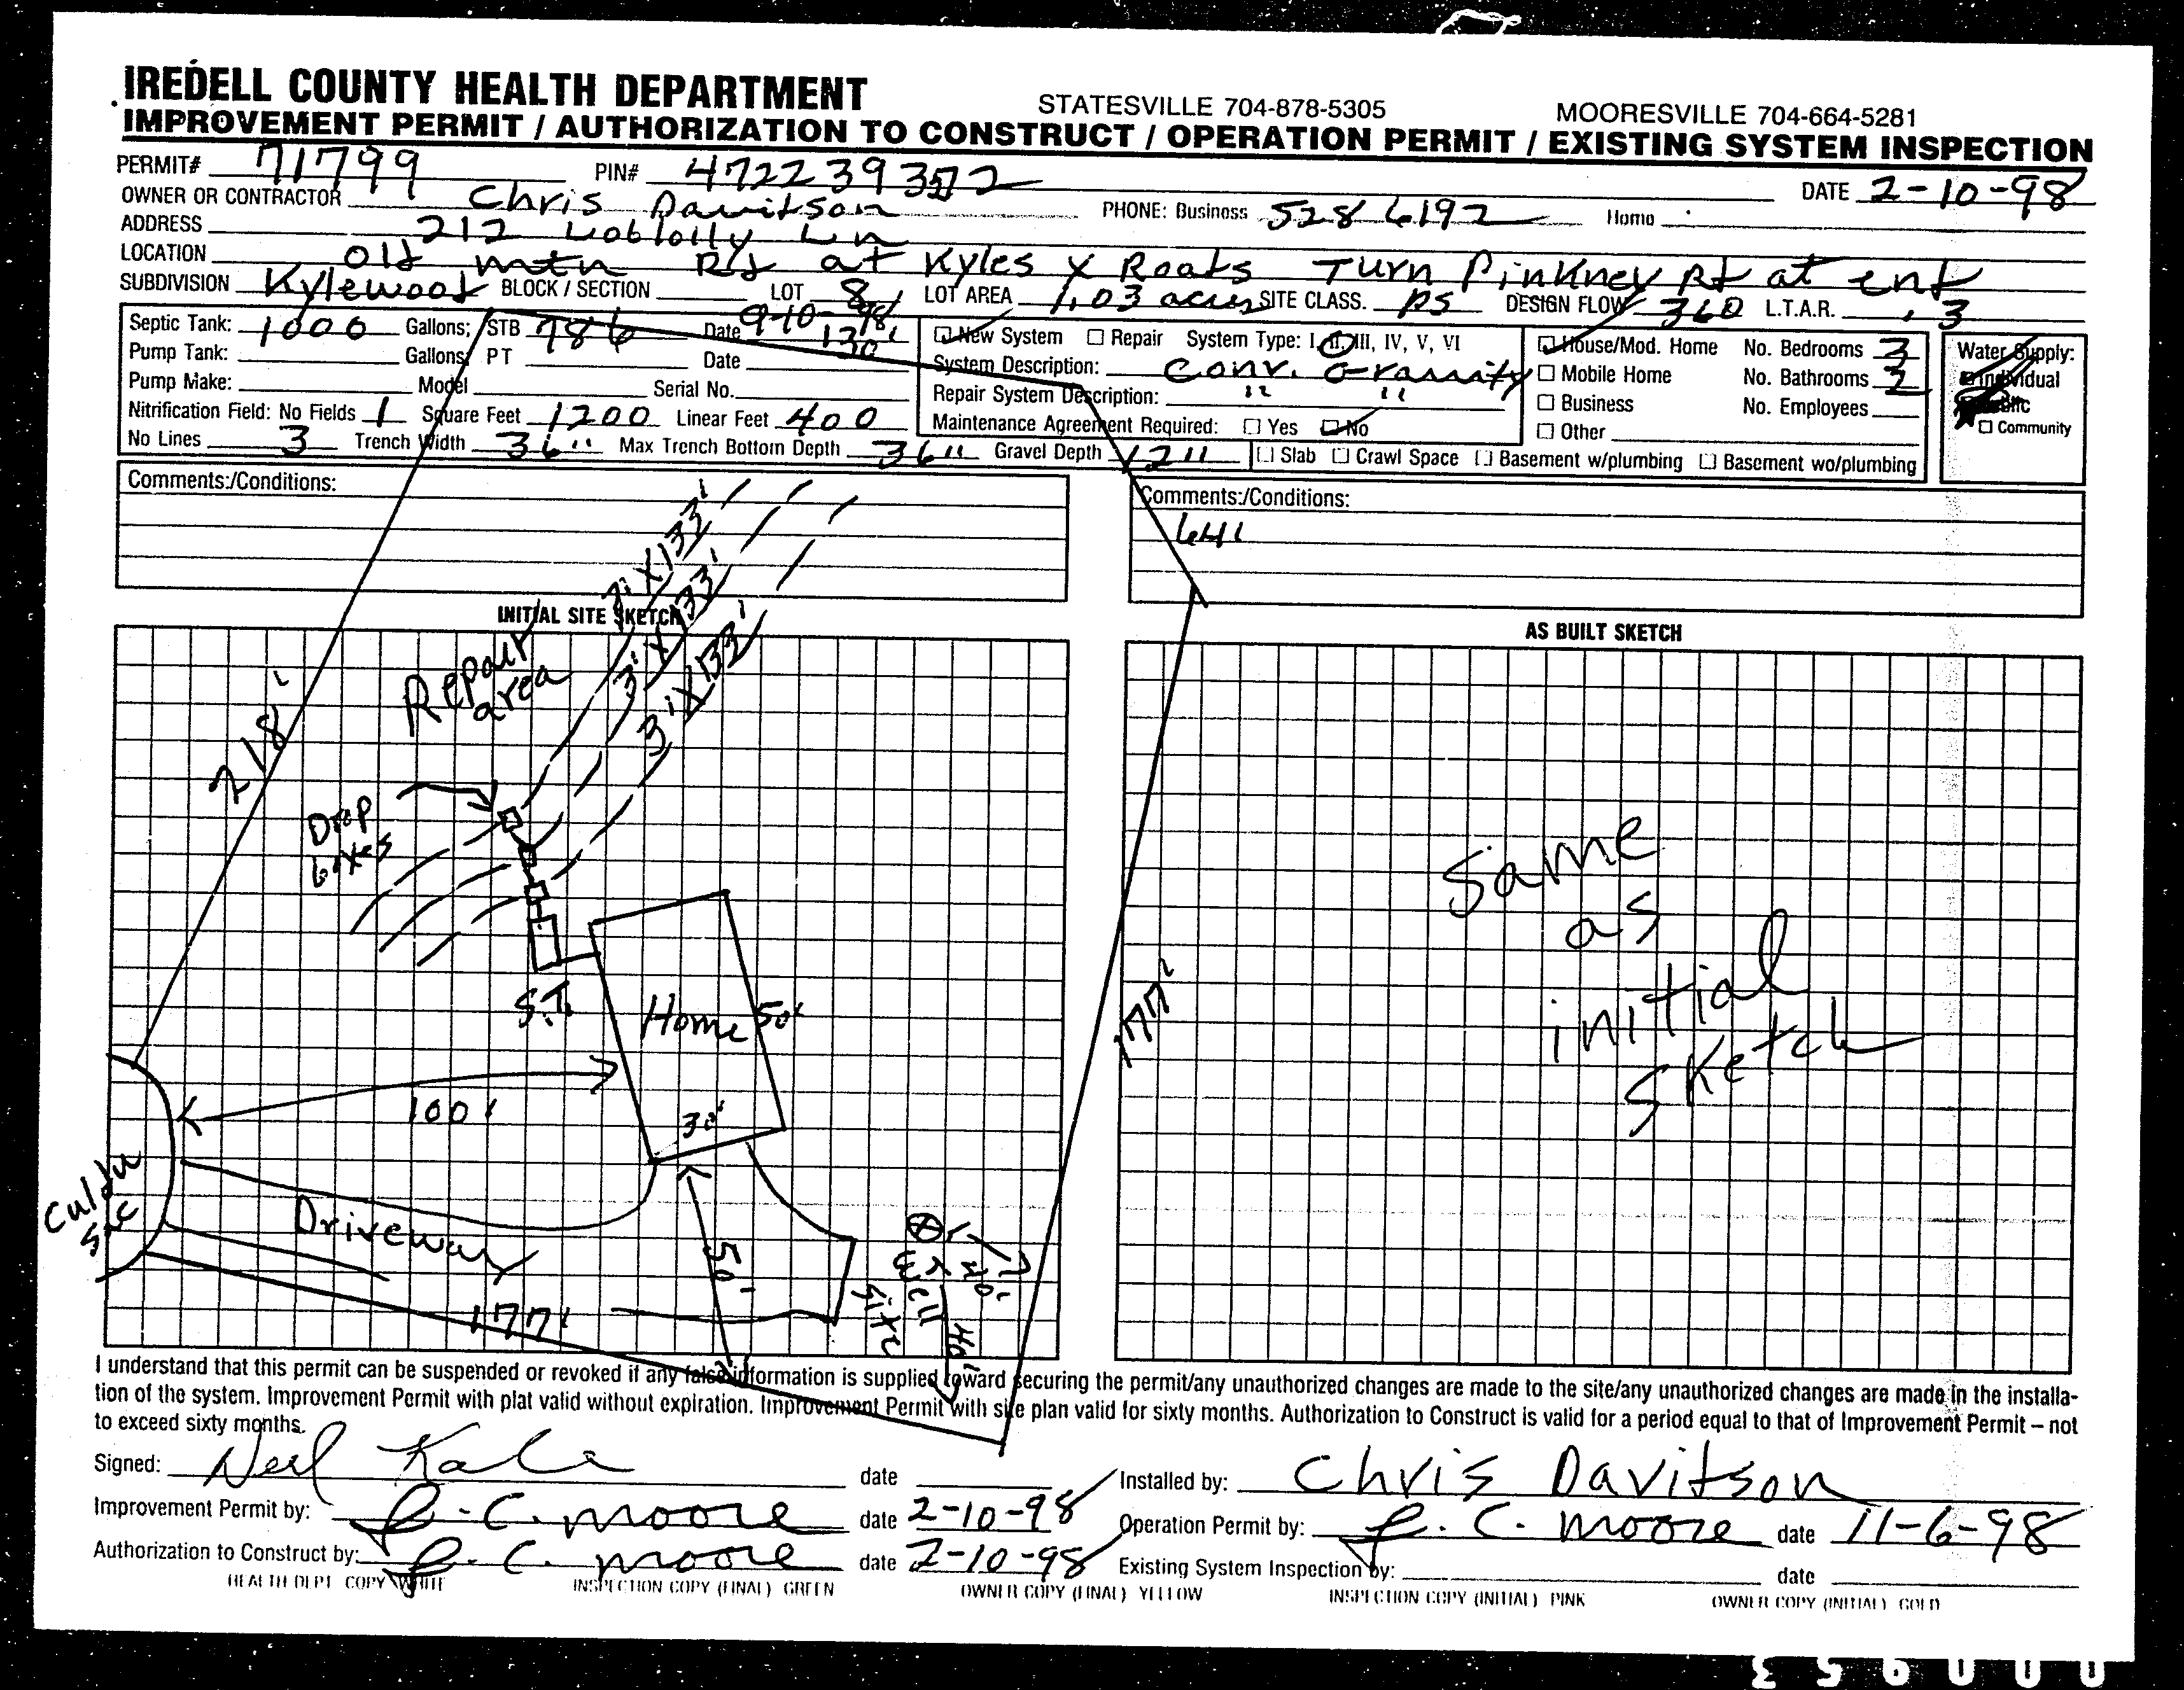 IREDELL COUNTY HEALTH DEPARTMENT
STATESVILLE 704-878-5305 MOORESVILLE 704-664-5281
IMPROVEMENT PERMIT / AUTHORIZATION TO CONSTRUCT / OPERATION PERMIT / EXISTING SYSTEM INSPECTION
PERMIT# 71799 PIN# DATE 2-10-98
OWNER OR CONTRACTOR Chris Davitson PHONE: Business 528 6192 Home
ADDRESS 212 Loblolly Ln
LOCATION Old mtn Rd at Kyles X Roads Turn Pinkney Rd at end
SUBDIVISION Kylewood BLOCK / SECTION LOT 8 LOT AREA 1.03 acres SITE CLASS. PS DESIGN FLOW 360 L.T.A.R. .3
Septic Tank: 1000 Gallons; STB 786 Date 9-10-98
130'
Pump Tank: Gallons; PT Date
Pump Make: Model Serial No.
Nitrification Field: No Fields 1 Square Feet 1200 Linear Feet 400
No Lines 3 Trench Width 36" Max Trench Bottom Depth 36" Gravel Depth 12"
New System Repair System Type: I, II, III, IV, V, VI
System Description: Conv. Gravity
Repair System Description: " "
Maintenance Agreement Required: Yes No
House/Mod. Home No. Bedrooms 3
Mobile Home No. Bathrooms 2
Business No. Employees
Other
Slab Crawl Space Basement w/plumbing Basement wo/plumbing
Water Supply:
Individual
Public
Community
Comments:/Conditions:
Comments:/Conditions:
64'
INITIAL SITE SKETCH
3'X133'
3'X133'
3'X133'
Repair
area
218'
Drop
boxes
S.T.
Home 50'
30'
100'
Culdu
sac
Driveway
50'
177'
Well
Site
40'
40'
177'
AS BUILT SKETCH
Same
as
initial
sketch
I understand that this permit can be suspended or revoked if any false information is supplied toward securing the permit/any unauthorized changes are made to the site/any unauthorized changes are made in the installa-
tion of the system. Improvement Permit with plat valid without expiration. Improvement Permit with site plan valid for sixty months. Authorization to Construct is valid for a period equal to that of Improvement Permit – not
to exceed sixty months.
Signed: Neil date
Installed by: Chris Davitson
Improvement Permit by: C. Moore date 2-10-98
Operation Permit by: C. Moore date 11-6-98
Authorization to Construct by: C. Moore date 2-10-98
Existing System Inspection by: date
HEALTH DEPT COPY WHITE INSPECTION COPY (FINAL) GREEN OWNER COPY (FINAL) YELLOW INSPECTION COPY (INITIAL) PINK OWNER COPY (INITIAL) GOLD